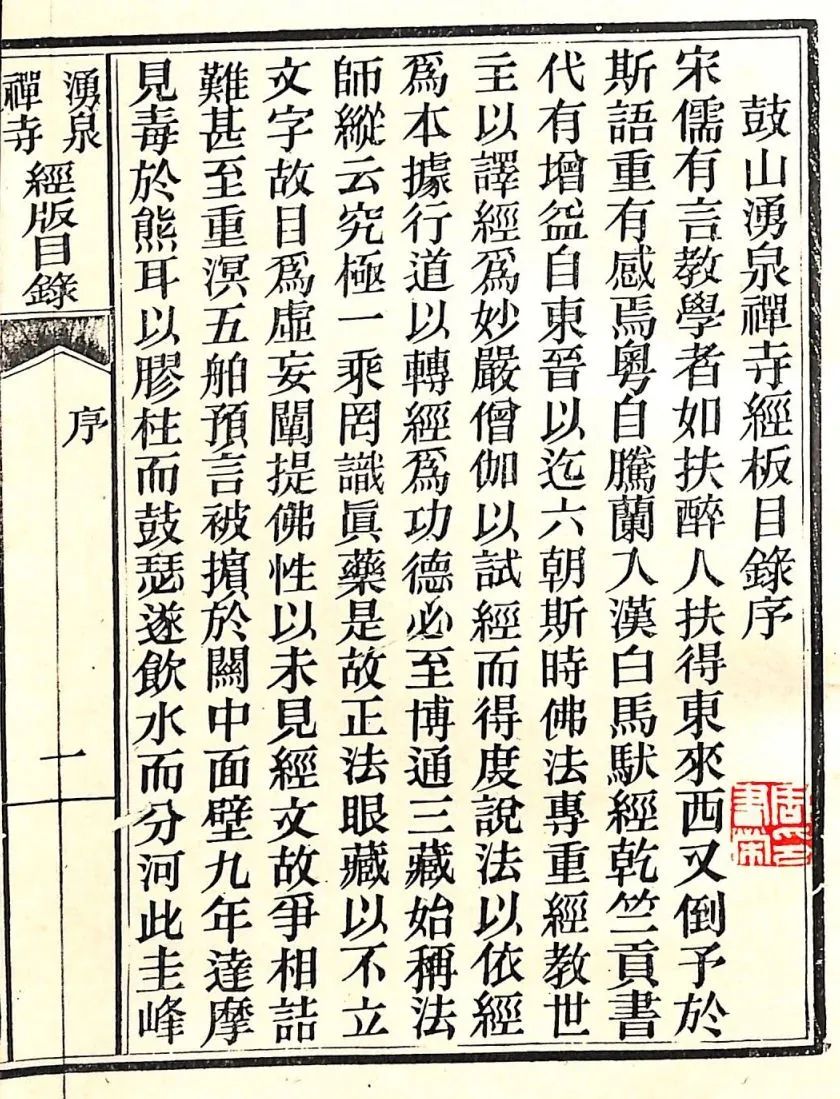 鼓山湧泉禪寺經板目錄序
宋儒有言教學者如扶醉人扶得東來西又倒予於
斯語重有感焉粵自騰蘭入漢白馬馱經乾竺貢書
代有增益自東晉以迄六朝斯時佛法專重經教世
主以譯經爲妙嚴僧伽以試經而得度說法以依經
爲本據行道以轉經爲功德必至博通三藏始稱法
師縱云究極一乘罔識眞藥是故正法眼藏以不立
文字故目爲虛妄闡提佛性以未見經文故爭相詰
難甚至重溟五舶預言被擯於關中面壁九年達摩
見毒於熊耳以膠柱而鼓瑟遂飲水而分河此圭峰
湧泉
禪寺
經版目錄
序
一